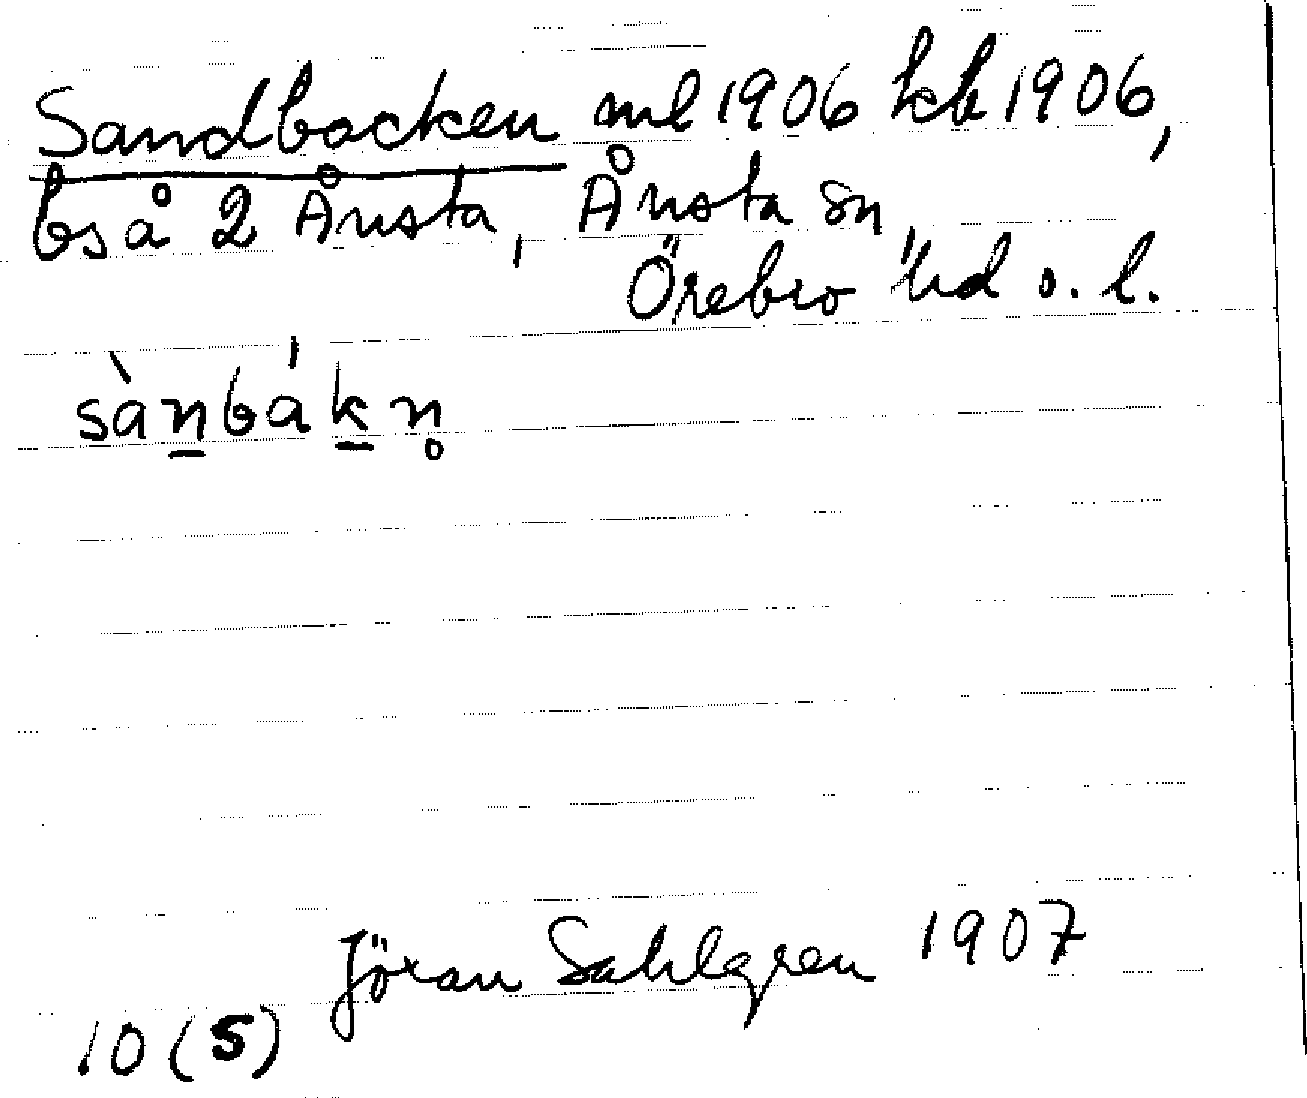 Sandbacken ml 1906 kb 1906,
bs å 2 Ånsta, Ånsta sn,
Örebro hd o. l.
sànbákn̥
Jöran Sahlgren 1907
10 (5)